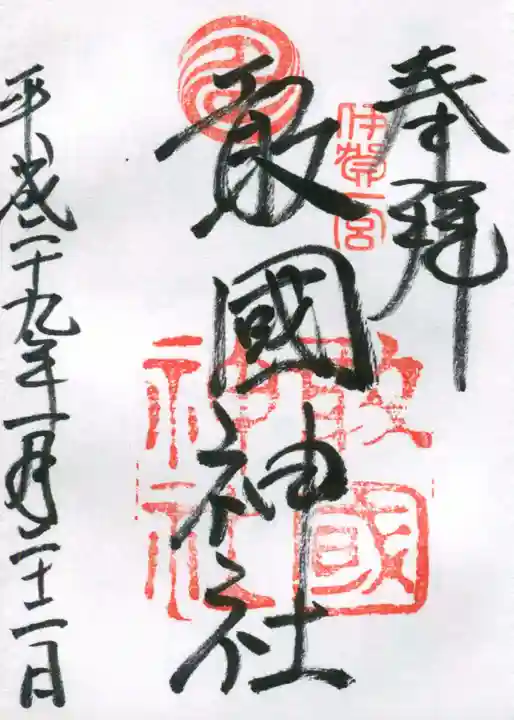 奉拝
伊賀一宮
敢國神社
敢國
神社
平成二十九年一月二十二日